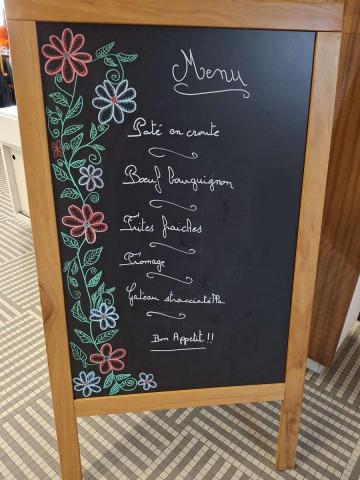 Menu
Paté en croute
Bœuf bourguignon
Frites fraiches
Fromage
Gateau stracciatella
Bon Appetit !!